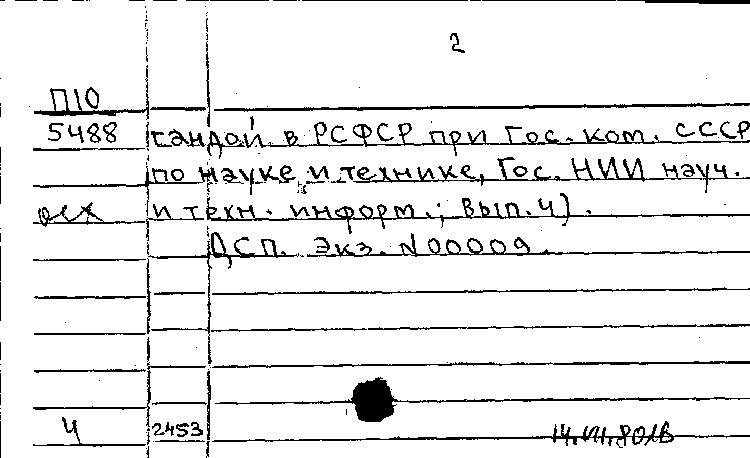 2
П10
5488 гандой в РСФСР при Гос. ком. СССР
по науке и технике, Гос. НИИ науч.
осх и техн. информ.; Вып. 4).
ДСП. Экз. N00009.
4 2453 14.VII.80